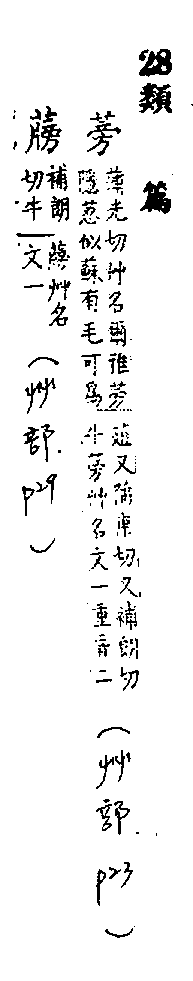 28類篇
蒡
蒲光切艸名爾雅蒡
隱荵似蘇有毛可為
菹又蒲庚切又補朗切
牛蒡艸名文一重音二
(艸部 p23)
補朗
切牛
艸名
文一
(艸部 p29)